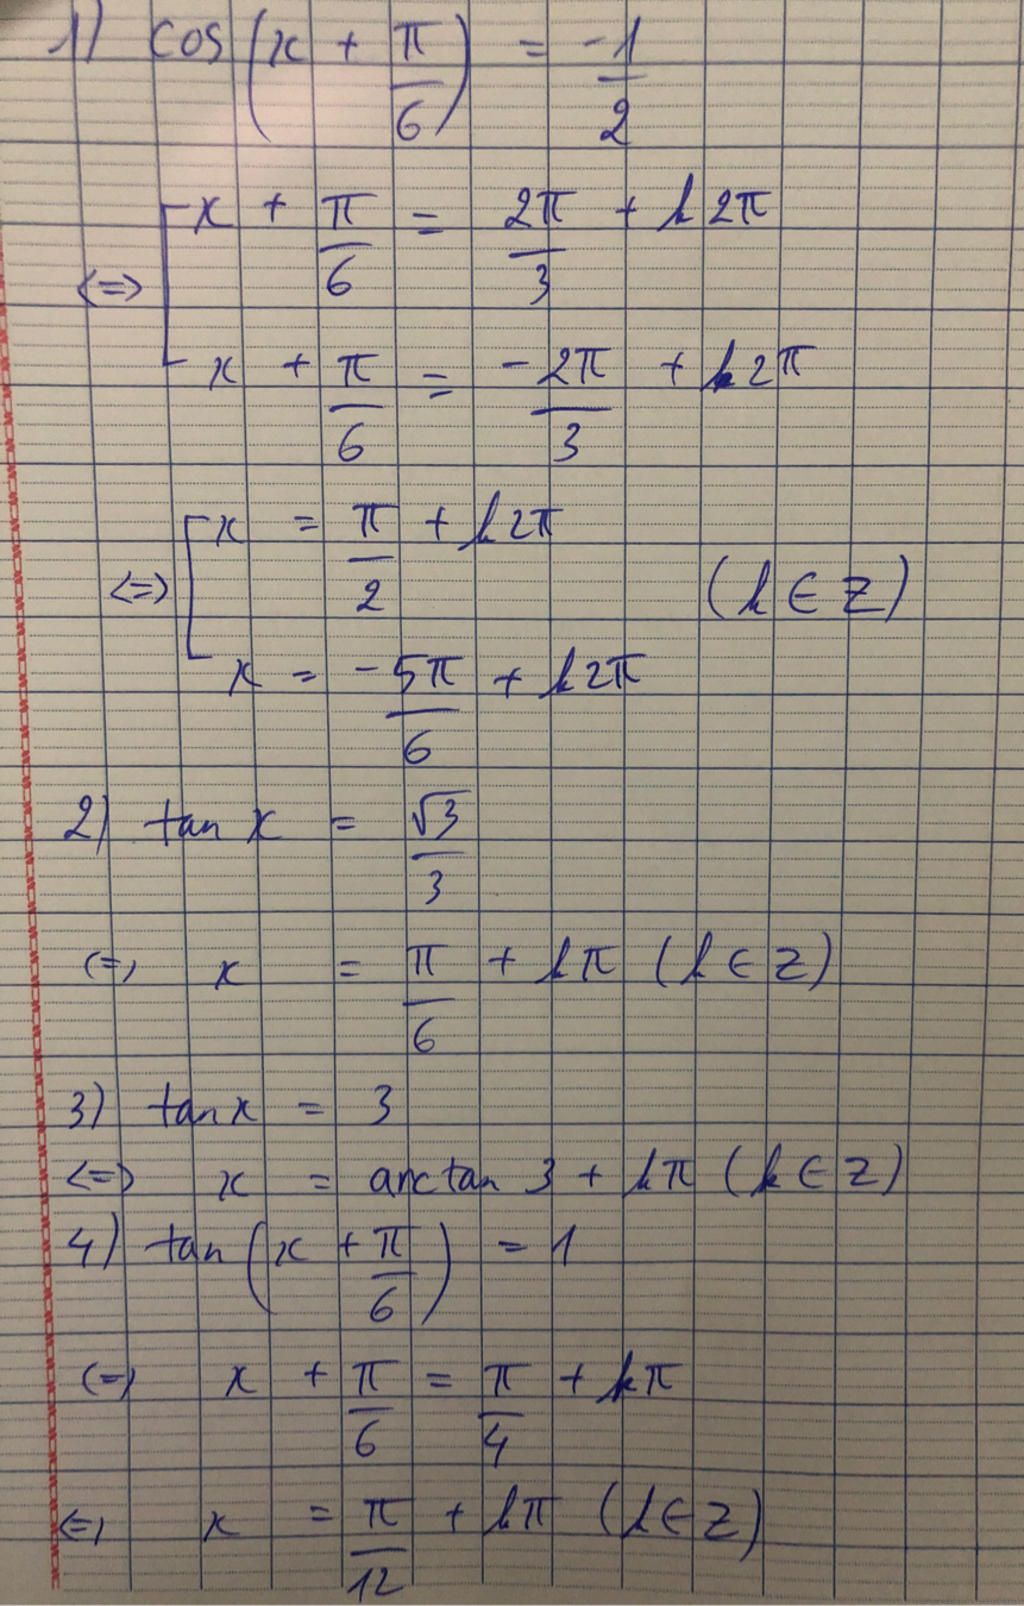 1) cos(x + π/6) = -1/2
<=> [ x + π/6 = 2π/3 + k2π
x + π/6 = -2π/3 + k2π
<=> [ x = π/2 + k2π
(k ∈ Z)
x = -5π/6 + k2π
2) tan x = √3/3
<=> x = π/6 + kπ (k ∈ Z)
3) tan x = 3
<=> x = arctan 3 + kπ (k ∈ Z)
4) tan(x + π/6) = 1
<=> x + π/6 = π/4 + kπ
<=> x = π/12 + kπ (k ∈ Z)